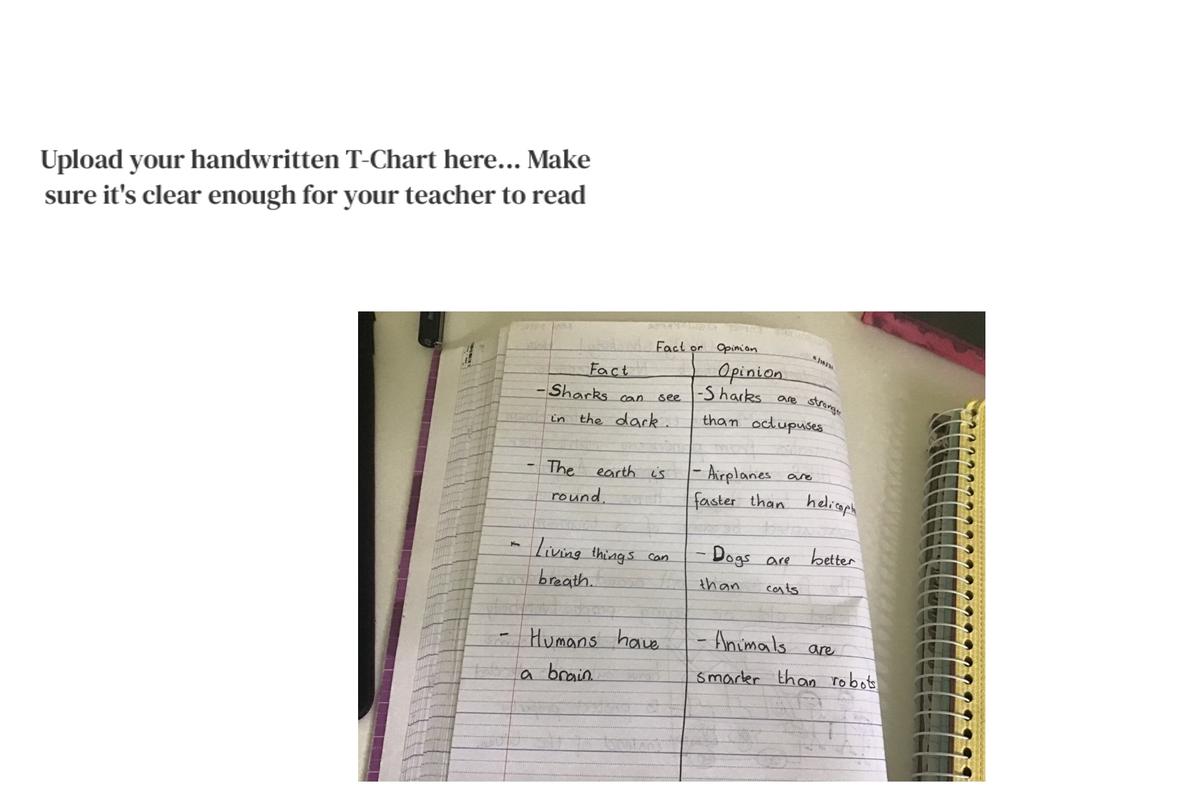 Upload your handwritten T-Chart here... Make
sure it's clear enough for your teacher to read
Fact or Opinion
Fact
Opinion
- Sharks can see
in the dark.
- The earth is
round.
- Living things can
breath.
- Humans have
a brain.
- Sharks are
than octupuses
- Airplanes are
faster than
- Dogs are better
than cats
- Animals are
smarter than robots